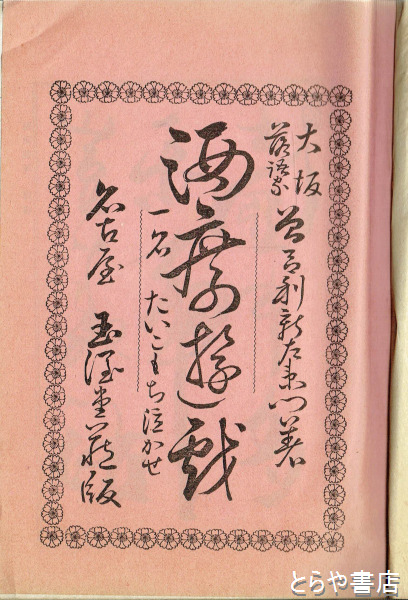 大坂
落語家
曽呂利新左衛門著
酒席遊戯
一名 たいこもち泣かせ
名古屋 玉潤堂蔵版
とらや書店